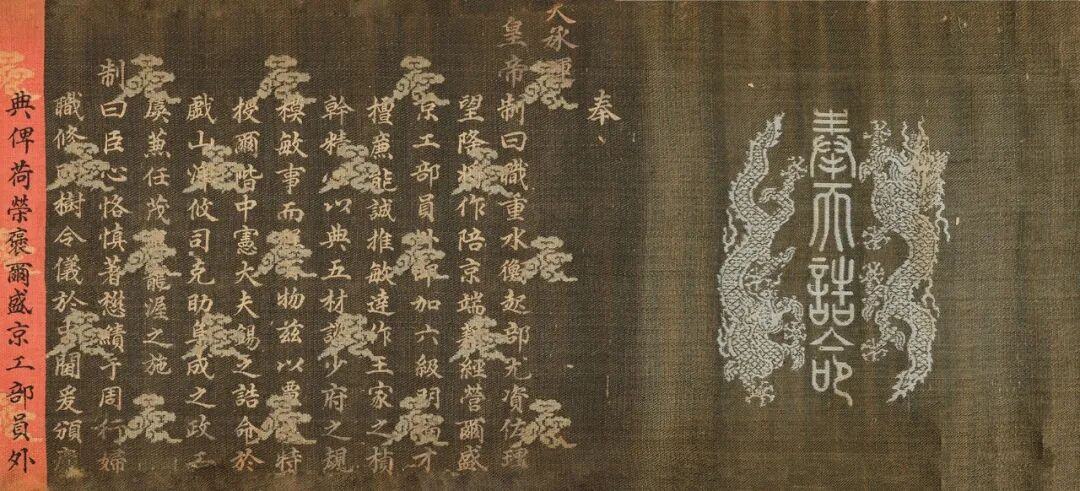 奉天誥命
奉
天承運
皇帝制曰職重水衡起部尤資佐理
望隆將作陪京端賴經營爾盛
京工部員外郎加六級才
擅廉能誠推敏達作王家之楨
幹精心以典五材謹少府之規
模敏事而程物茲以覃特
授爾階中憲大夫錫之誥命於
戲山澤攸司克助阜成之政工
虞兼任茂膺寵渥之施
制曰臣心恪慎著懋績于周行婦
職修樹令儀於中閫爰頒慶
典俾荷榮褒爾盛京工部員外